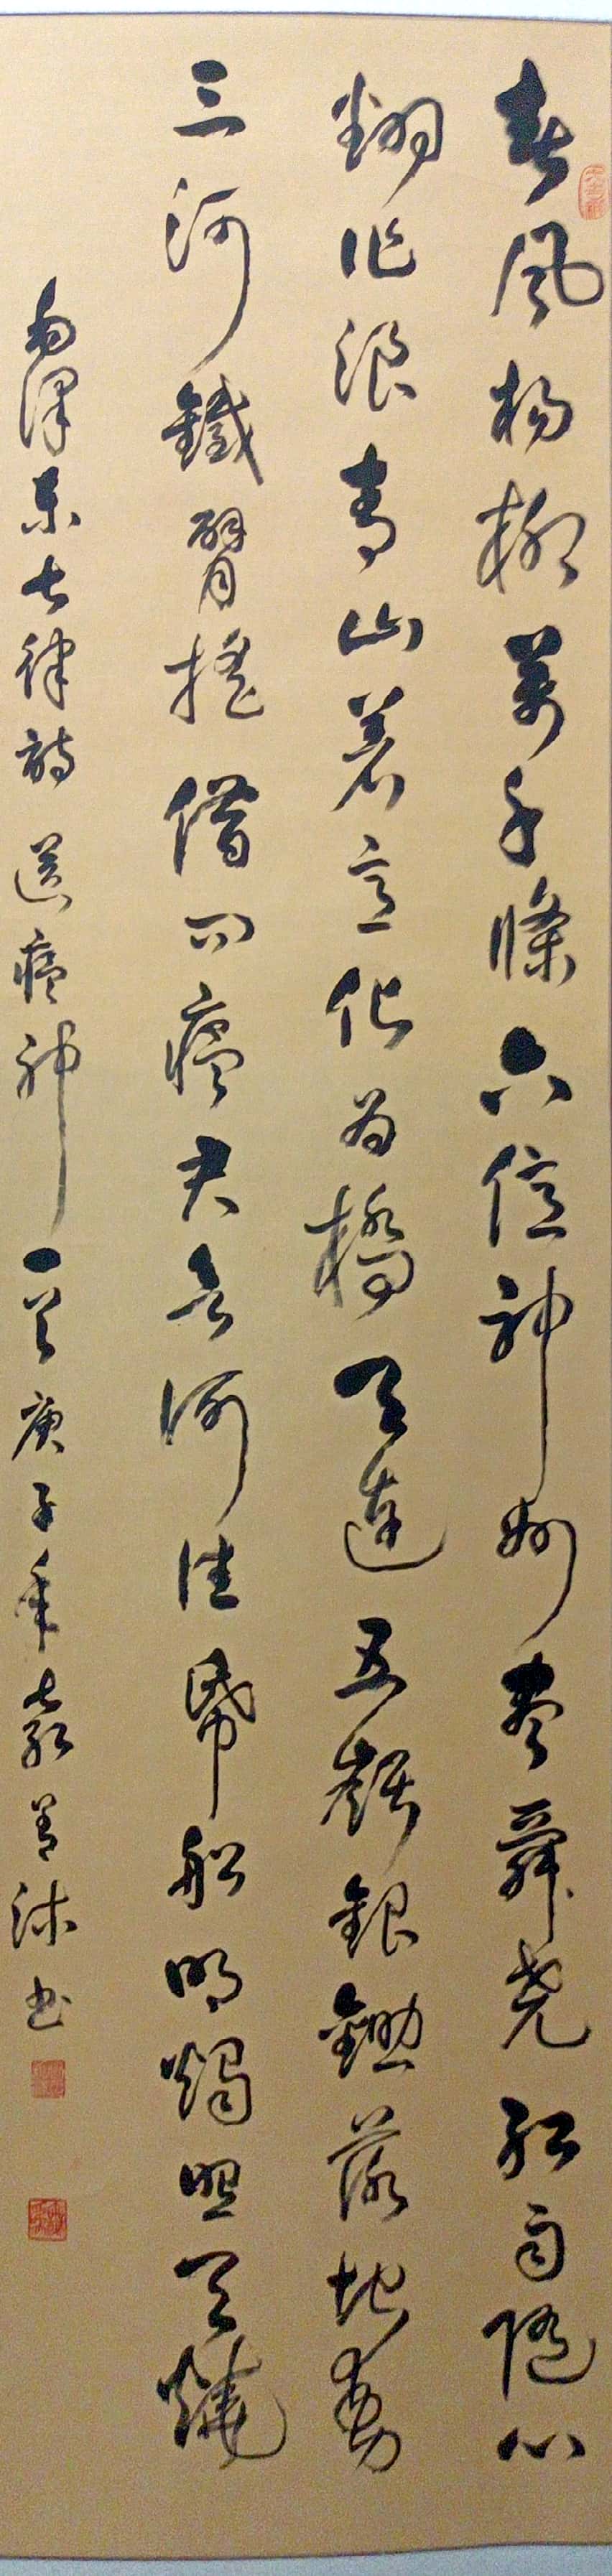 春風楊柳萬千條六億神州盡舜尧紅雨隨心
翻作浪青山着意化為橋天連五嶺銀鋤落地動
三河鐵臂搖借问瘟君欲何往紙船明燭照天燒
毛澤东七律诗送瘟神一首庚子年 善沐书